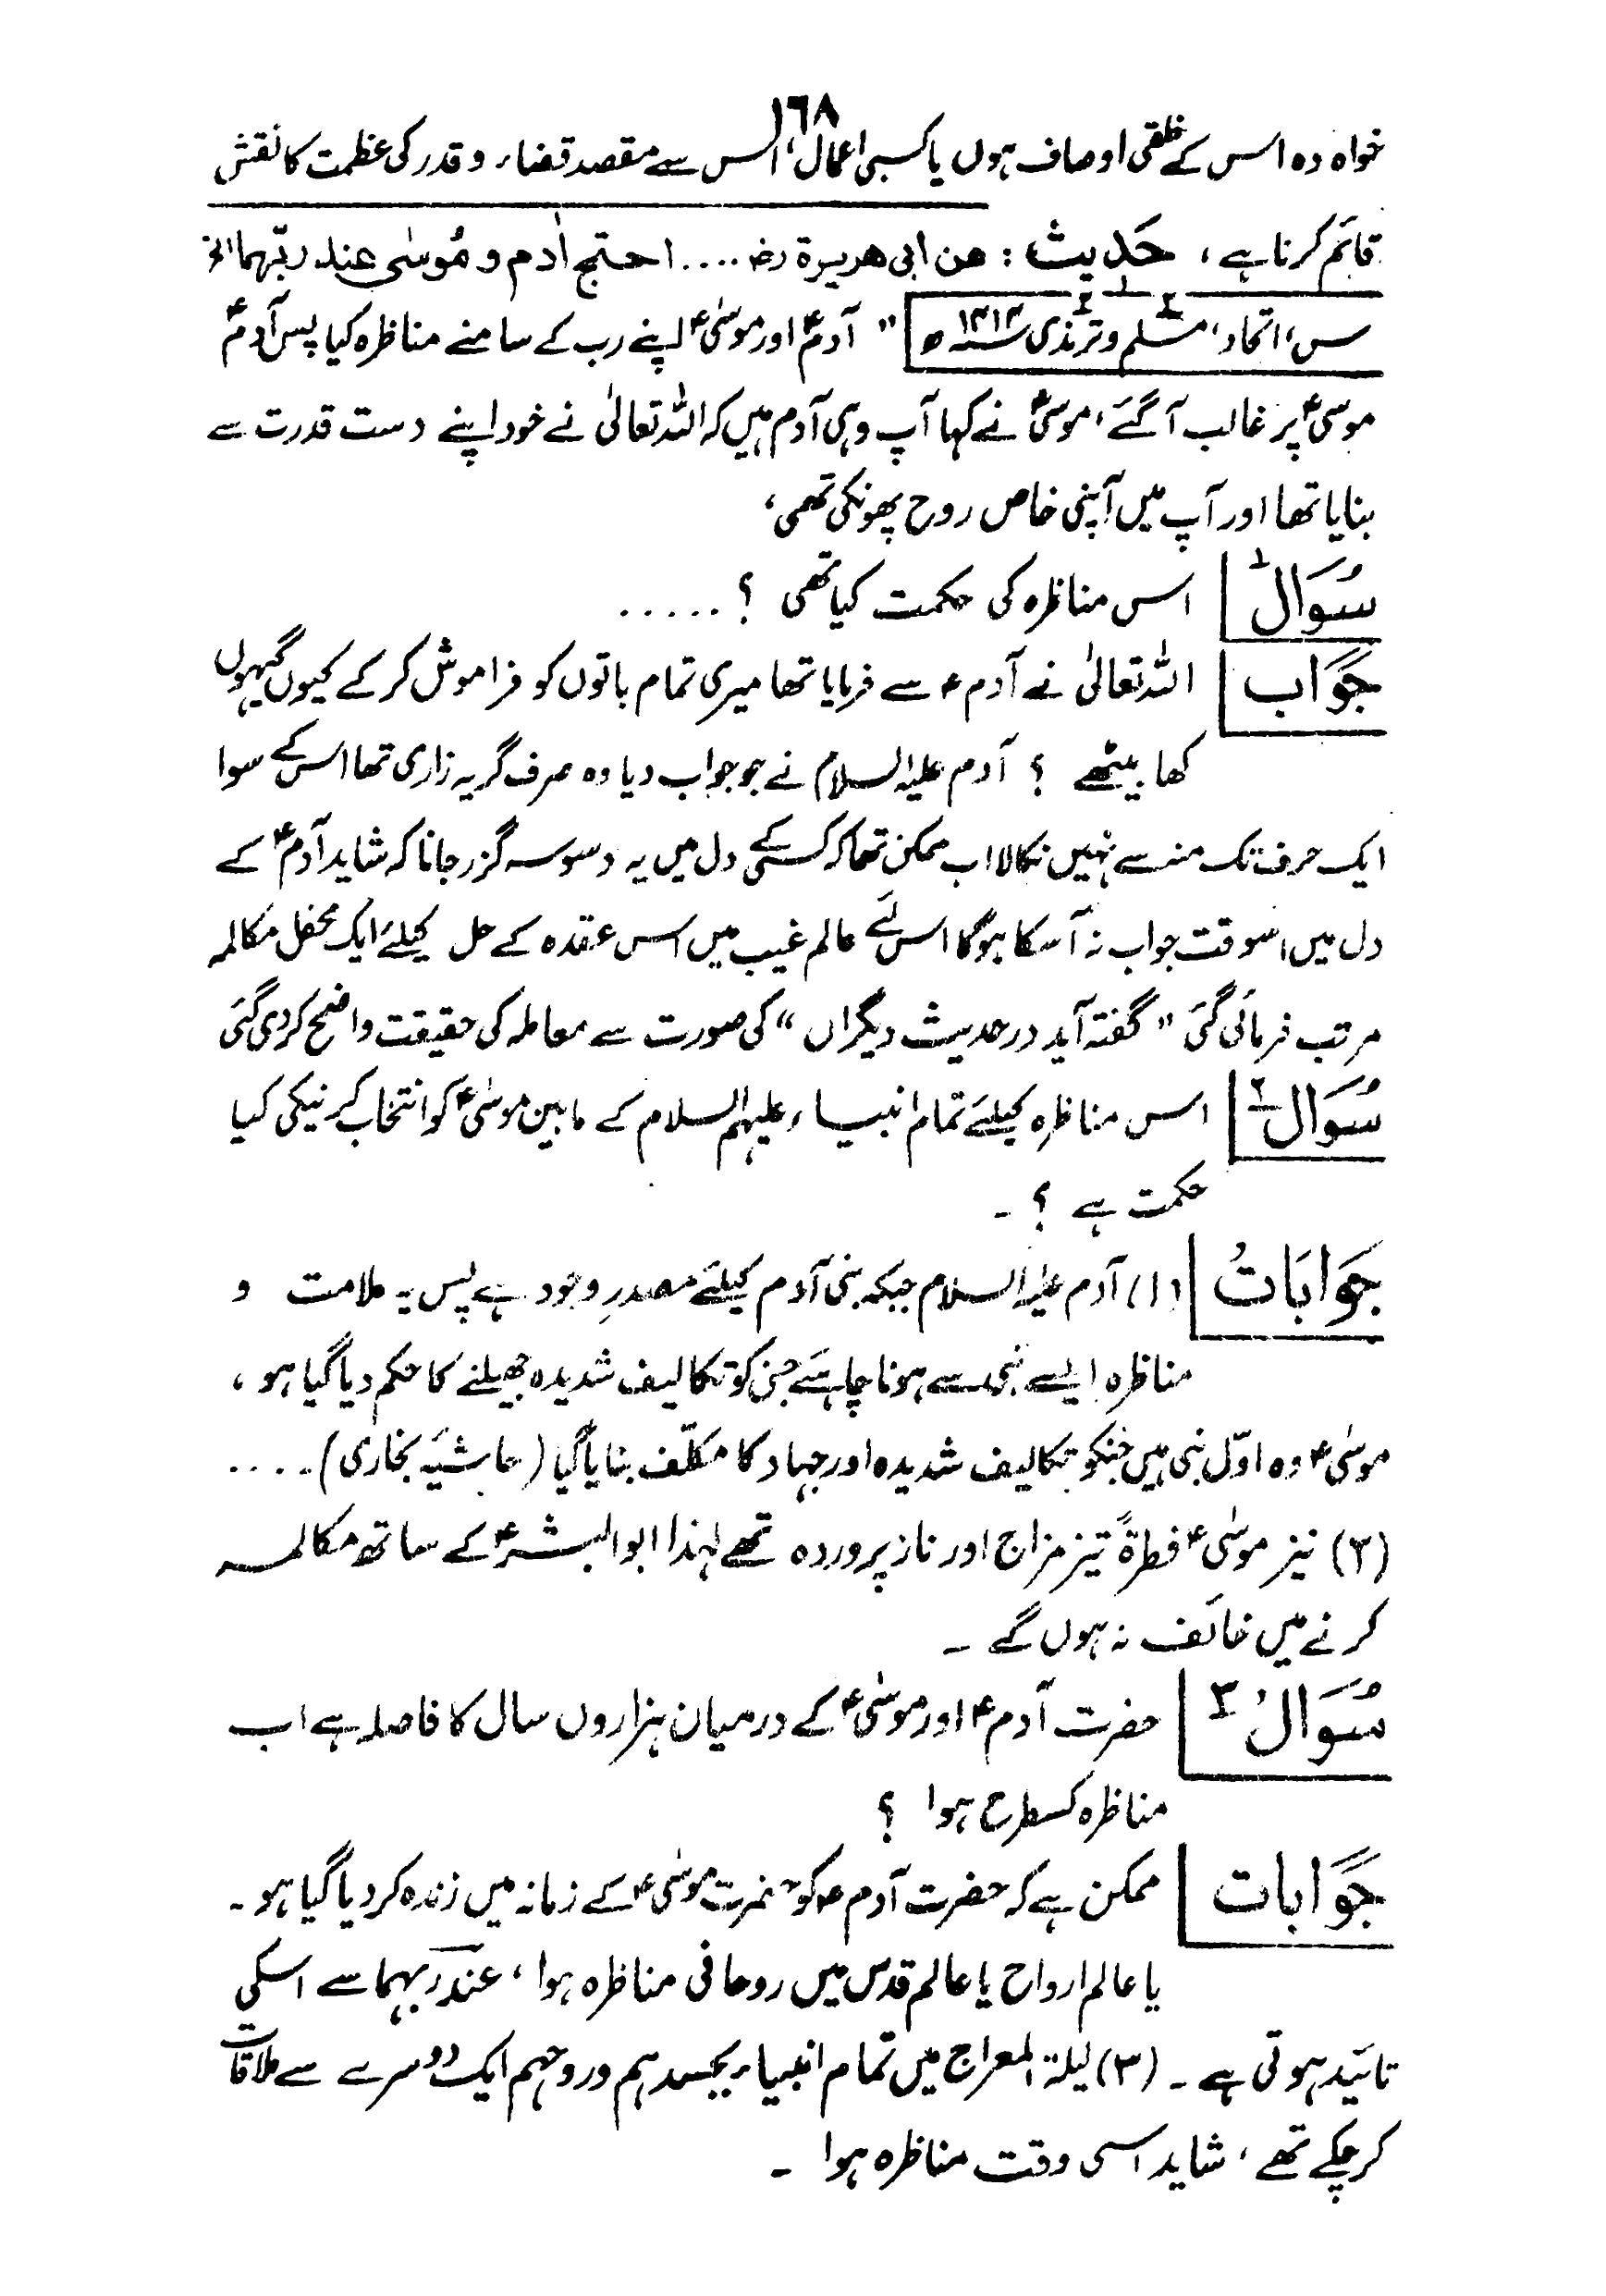 ١٦٨
خواہ وہ اس کے خلقی اوصاف ہوں یا کسبی اعمال، اس سے مقصد قضاء و قدر کی عظمت کا نقش
قائم کرنا ہے، حَدِیث : عن ابی هریرة رض .... احتج اٰدم و مُوسٰی عند ربّهما الخ
س، اتحاد، مسلم و ترمذی ۱۴۱۴ھ " آدمؑ اور موسیٰؑ اپنے رب کے سامنے مناظرہ کیا پس آدمؑ
موسیؑ پر غالب آگئے، موسیؑ نے کہا آپ وہی آدم ہیں کہ اللہ تعالیٰ نے خود اپنے دست قدرت سے
بنایا تھا اور آپ میں اپنی خاص روح پھونکی تھی،
سُوَال ۱ اس مناظرہ کی حکمت کیا تھی ؟ .....
جَوَاب اللہ تعالیٰ نے آدم ؑ سے فرمایا تھا میری تمام باتوں کو فراموش کر کے کیوں گیہوں
کھا بیٹھے ؟ آدم علیہ السلام نے جو جواب دیا وہ صرف گریہ زاری تھا اس کے سوا
ایک حرف تک منہ سے نہیں نکالا اب ممکن تھا کہ کسی کے دل میں یہ وسوسہ گزر جاتا کہ شاید آدمؑ کے
دل میں اسوقت جواب نہ آسکا ہوگا اس لئے عالم غیب میں اس عقدہ کے حل کیلئے ایک محفل مکالمہ
مرتب فرمائی گئی " گفتہ آید در حدیث دیگراں " کی صورت سے معاملہ کی حقیقت واضح کر دی گئی
سُوَال ۲ اس مناظرہ کیلئے تمام انبیاء علیہم السلام کے مابین موسیٰؑ کو انتخاب کرنیکی کیا
حکمت ہے ؟ ۔
جَوَابَاتُ (۱) آدم علیہ السلام جبکہ بنی آدم کیلئے مصدرِ وجود ہے پس یہ ملامت و
مناظرہ ایسے نبی سے ہونا چاہئے جن کو تکالیف شدیدہ جھیلنے کا حکم دیا گیا ہو ،
موسٰی ؑ وہ اوّل نبی ہیں جنکو تکالیف شدیدہ اور جہاد کا مکلّف بنایا گیا (حاشیۂ بخاری) ....
(۲) نیز موسٰی ؑ فطرۃً تیز مزاج اور ناز پروردہ تھے لہذا ابو البشرؑ کے ساتھ مکالمہ
کرنے میں خائف نہ ہوں گے ۔
سُوَالُ ۳ حضرت آدم ؑ اور موسٰیؑ کے درمیان ہزاروں سال کا فاصلہ ہے اب
مناظرہ کسطرح ہوا ؟
جَوَابات ممکن ہے کہ حضرت آدم ؑ کو حضرت موسٰی ؑ کے زمانہ میں زندہ کر دیا گیا ہو ۔
یا عالم ارواح یا عالم قدس میں روحانی مناظرہ ہوا ، عند ربہما سے اسکی
تائید ہوتی ہے ۔ (۳) لیلۃ المعراج میں تمام انبیاء بجسدہم وروحہم ایک دوسرے سے ملاقات
کر چکے تھے ، شاید اسی وقت مناظرہ ہوا ۔